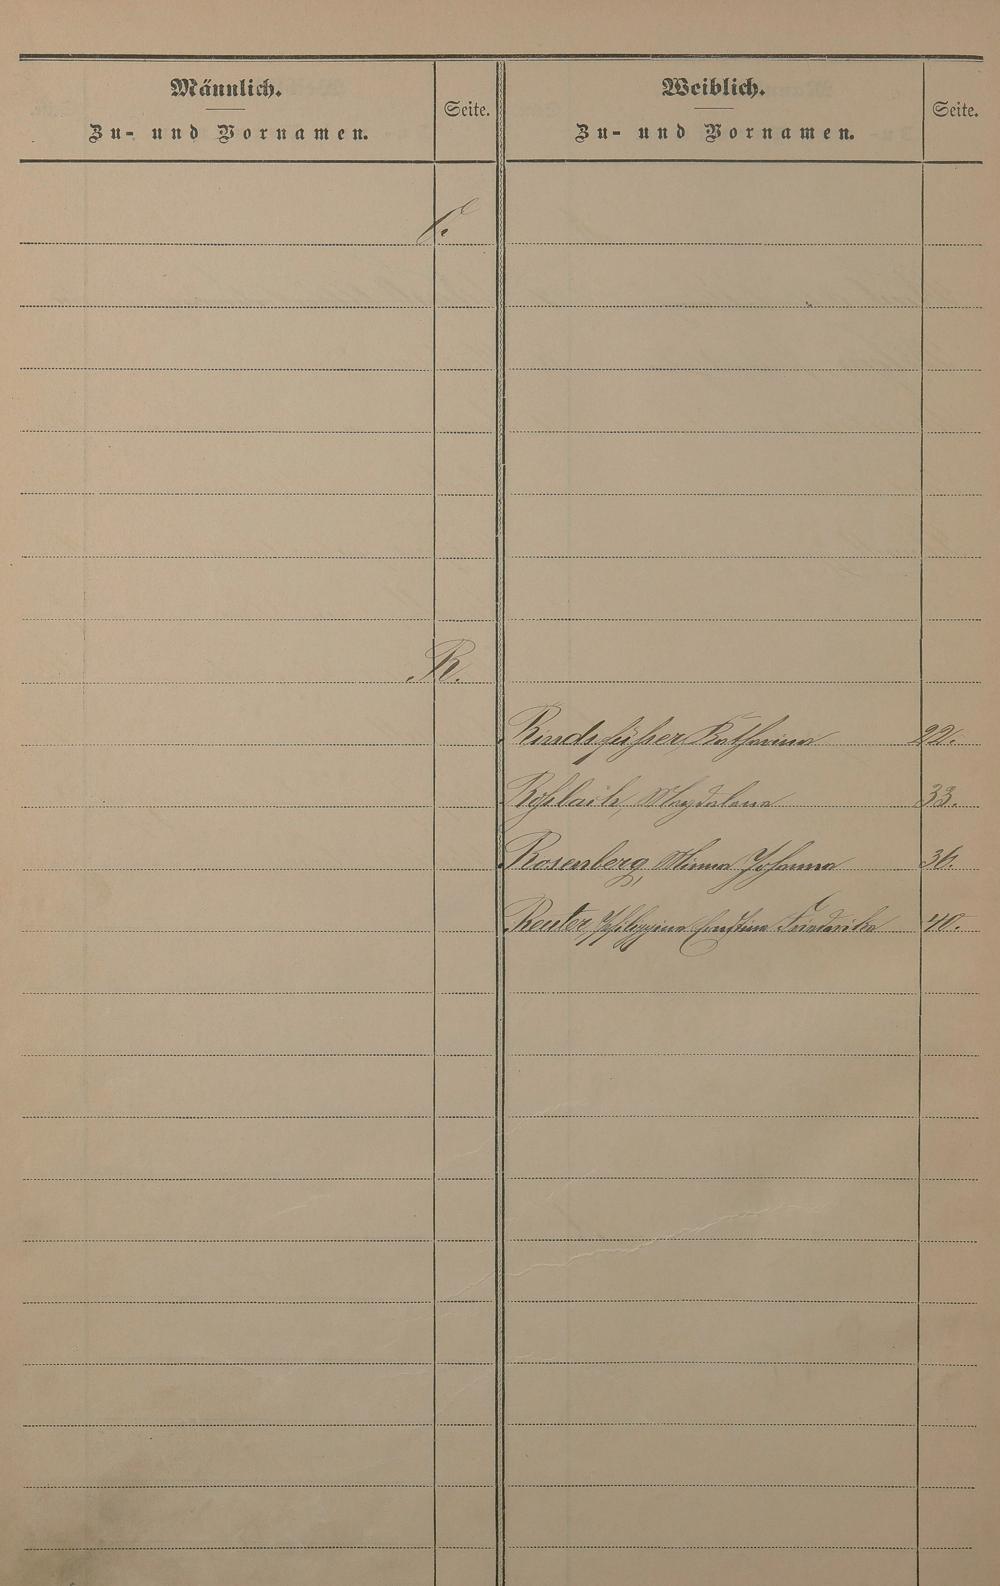 Männlich.
Zu- und Vornamen.
Seite.
Weiblich.
Zu- und Vornamen.
Seite.
R.
Rindsfüßer, Katharina 22.
Magdalena 33.
Rosenberg, Minna Johanna 36.
Reuter, Philippine Ernstine Friederike 40.